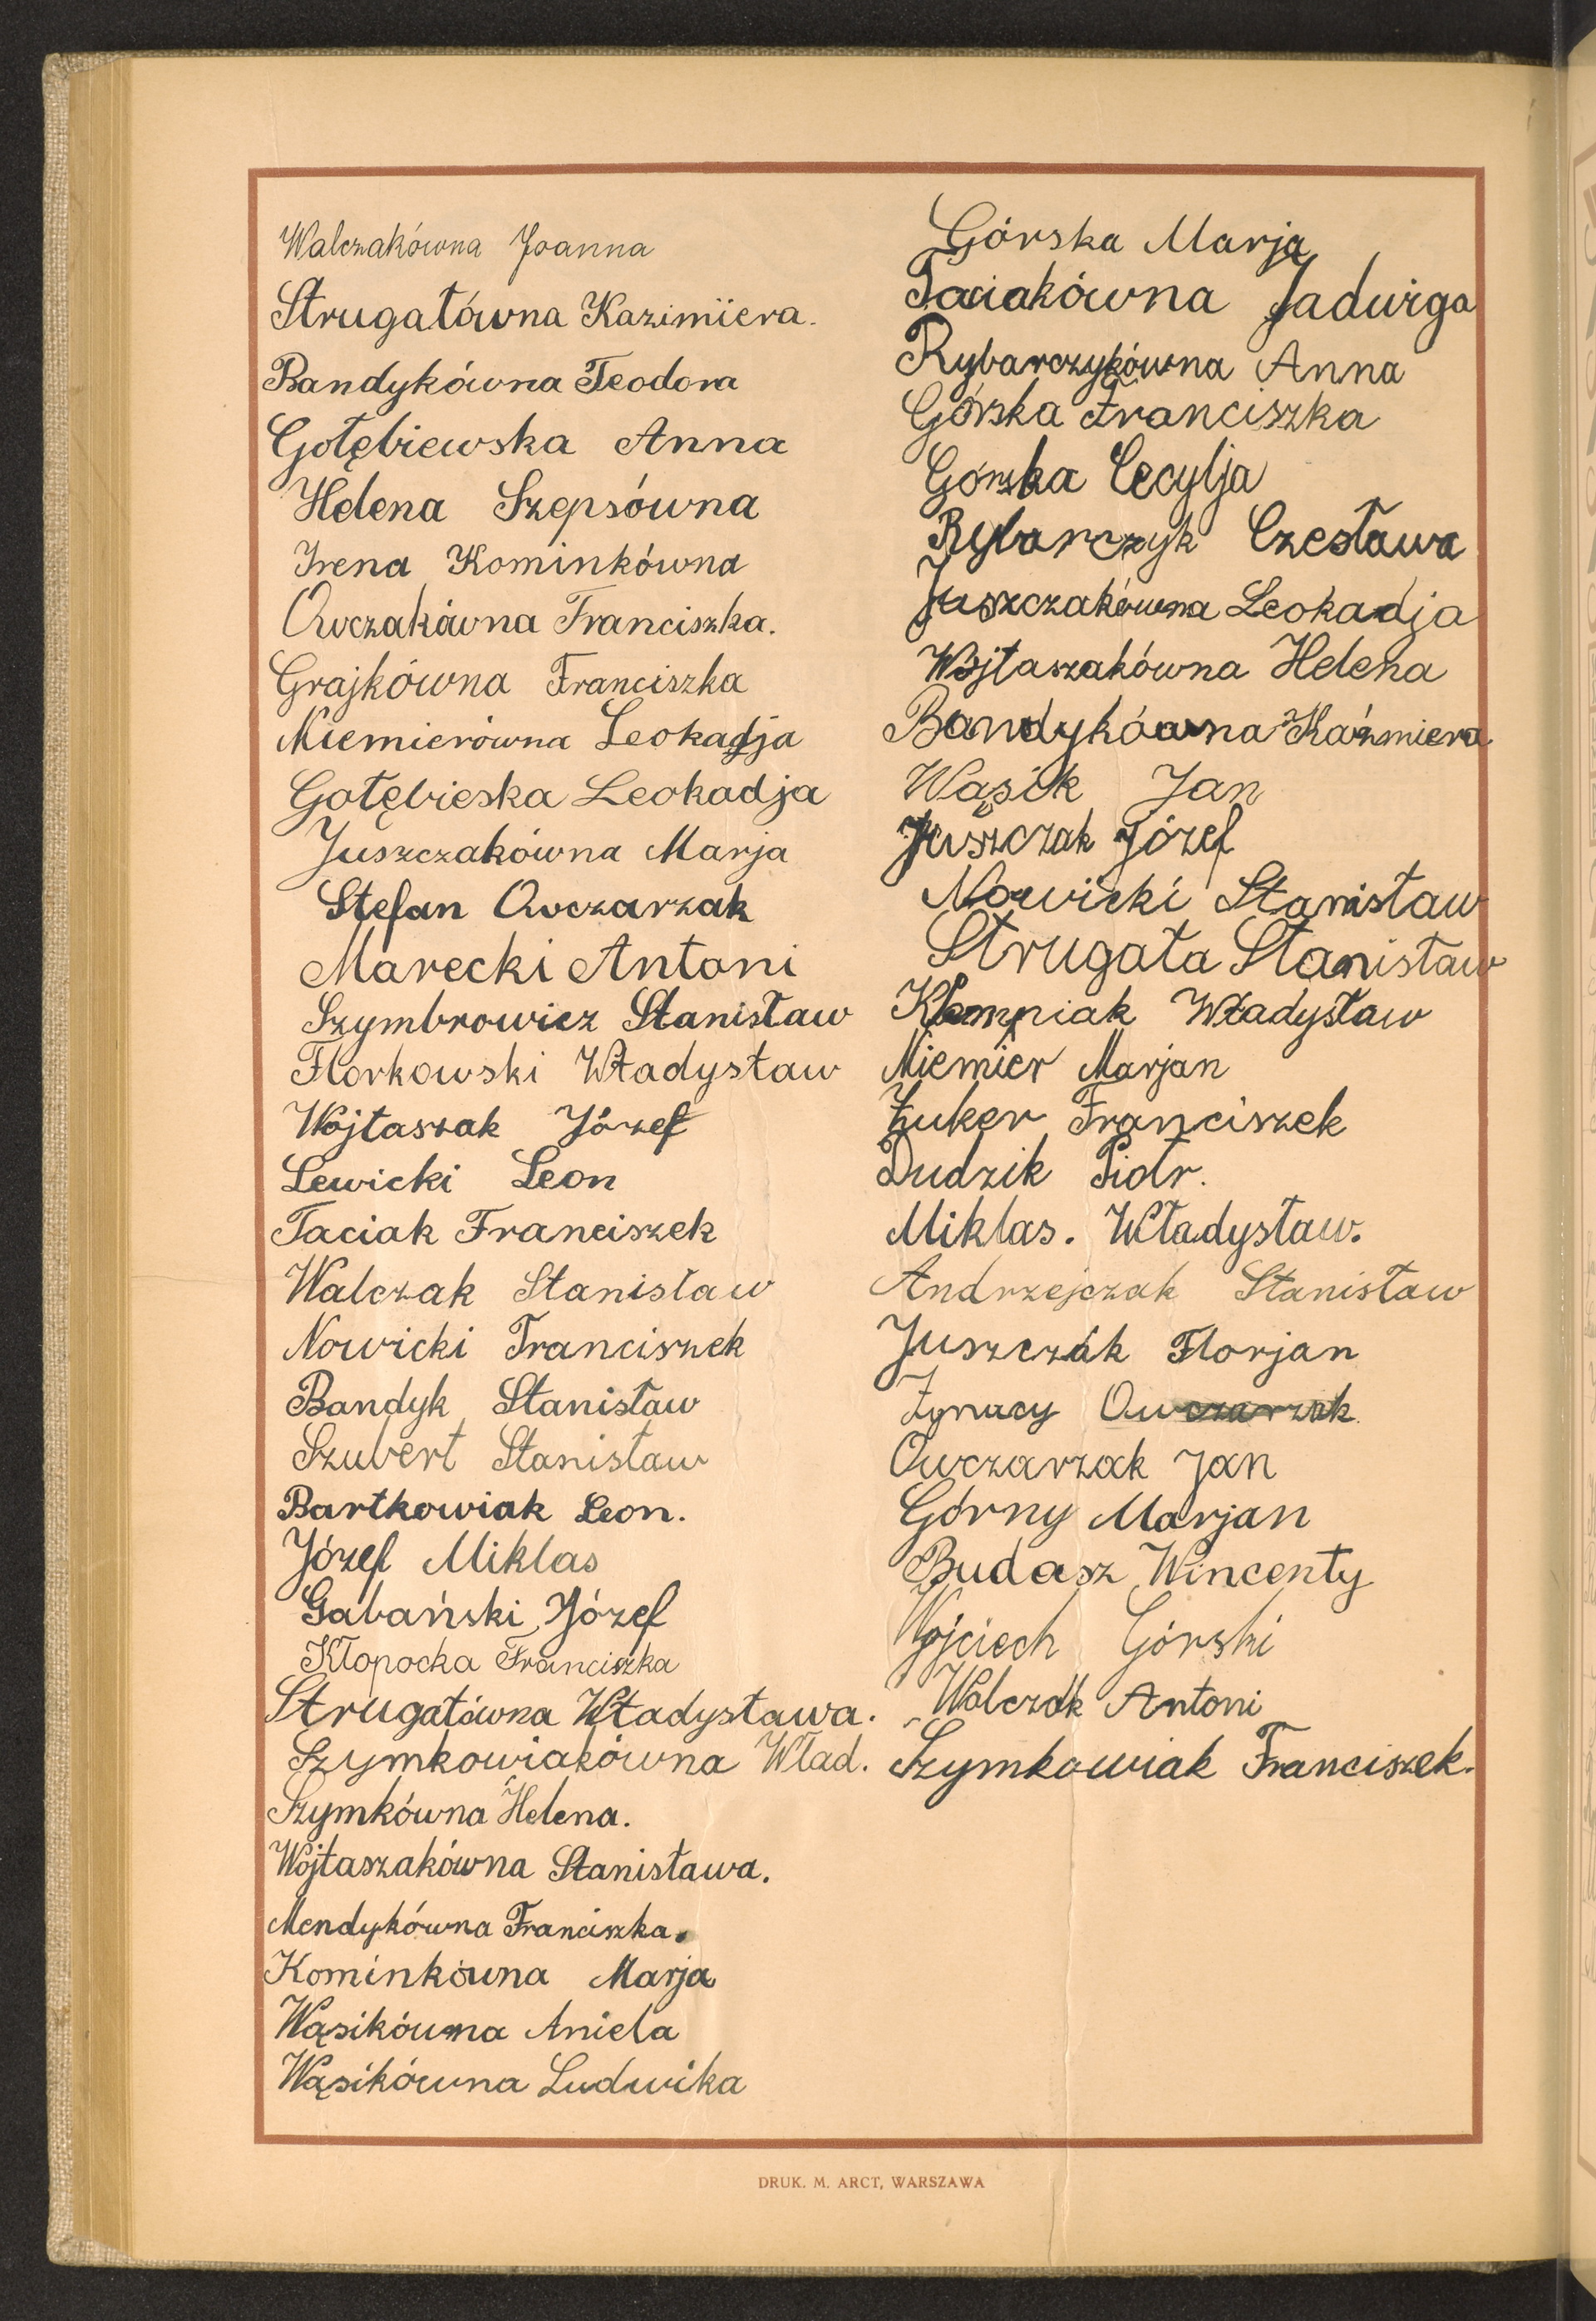 Walczakówna Joanna
Strugałówna Kazimiera.
Bandykówna Teodora
Gołębiewska Anna
Helena Szepsówna
Irena Kominkówna
Owczakówna Franciszka.
Grajkówna Franciszka
Niemierówna Leokadja
Gołębieska Leokadja
Juszczakówna Marja
Stefan Owczarzak
Marecki Antoni
Szymbrowicz Stanisław
Florkowski Władysław
Wojtaszak Józef
Lewicki Leon
Taciak Franciszek
Walczak Stanisław
Nowicki Franciszek
Bandyk Stanisław
Szubert Stanisław
Bartkowiak Leon.
Józef Miklas
Gabański Józef
Kłopocka Franciszka
Strugałówna Władysława.
Szymkowiakówna Wład.
Szymkówna Helena.
Wojtaszakówna Stanisława.
Mendykówna Franciszka.
Kominkówna Marja
Wąsikówna Aniela
Wąsikówna Ludwika
Górska Marja
Taciakówna Jadwiga
Rybarczykówna Anna
Górska Franciszka
Górska Cecylja
Rybarczyk Czesława
Juszczakówna Leokadja
Wojtaszakówna Helena
Bandykówna Kaźmiera
Wąsik Jan
Juszczak Józef
Nowicki Stanisław
Strugała Stanisław
Władysław
Niemier Marjan
Żuker Franciszek
Dudzik Piotr.
Miklas. Władysław.
Andrzejczak Stanisław
Juszczak Florjan
Owczarzak
Owczarzak Jan
Górny Marjan
Budasz Wincenty
Wojciech Górski
Walczak Antoni
Szymkowiak Franciszek.
DRUK. M. ARCT, WARSZAWA